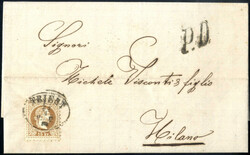 P.D.
Signori
Michele Visconti & figlio
TRIEST
Milano